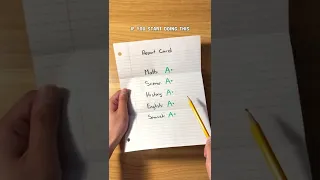 IF YOU START DOING THIS
Report Card
Math A+
Science A+
History A+
English A+
Spanish A+